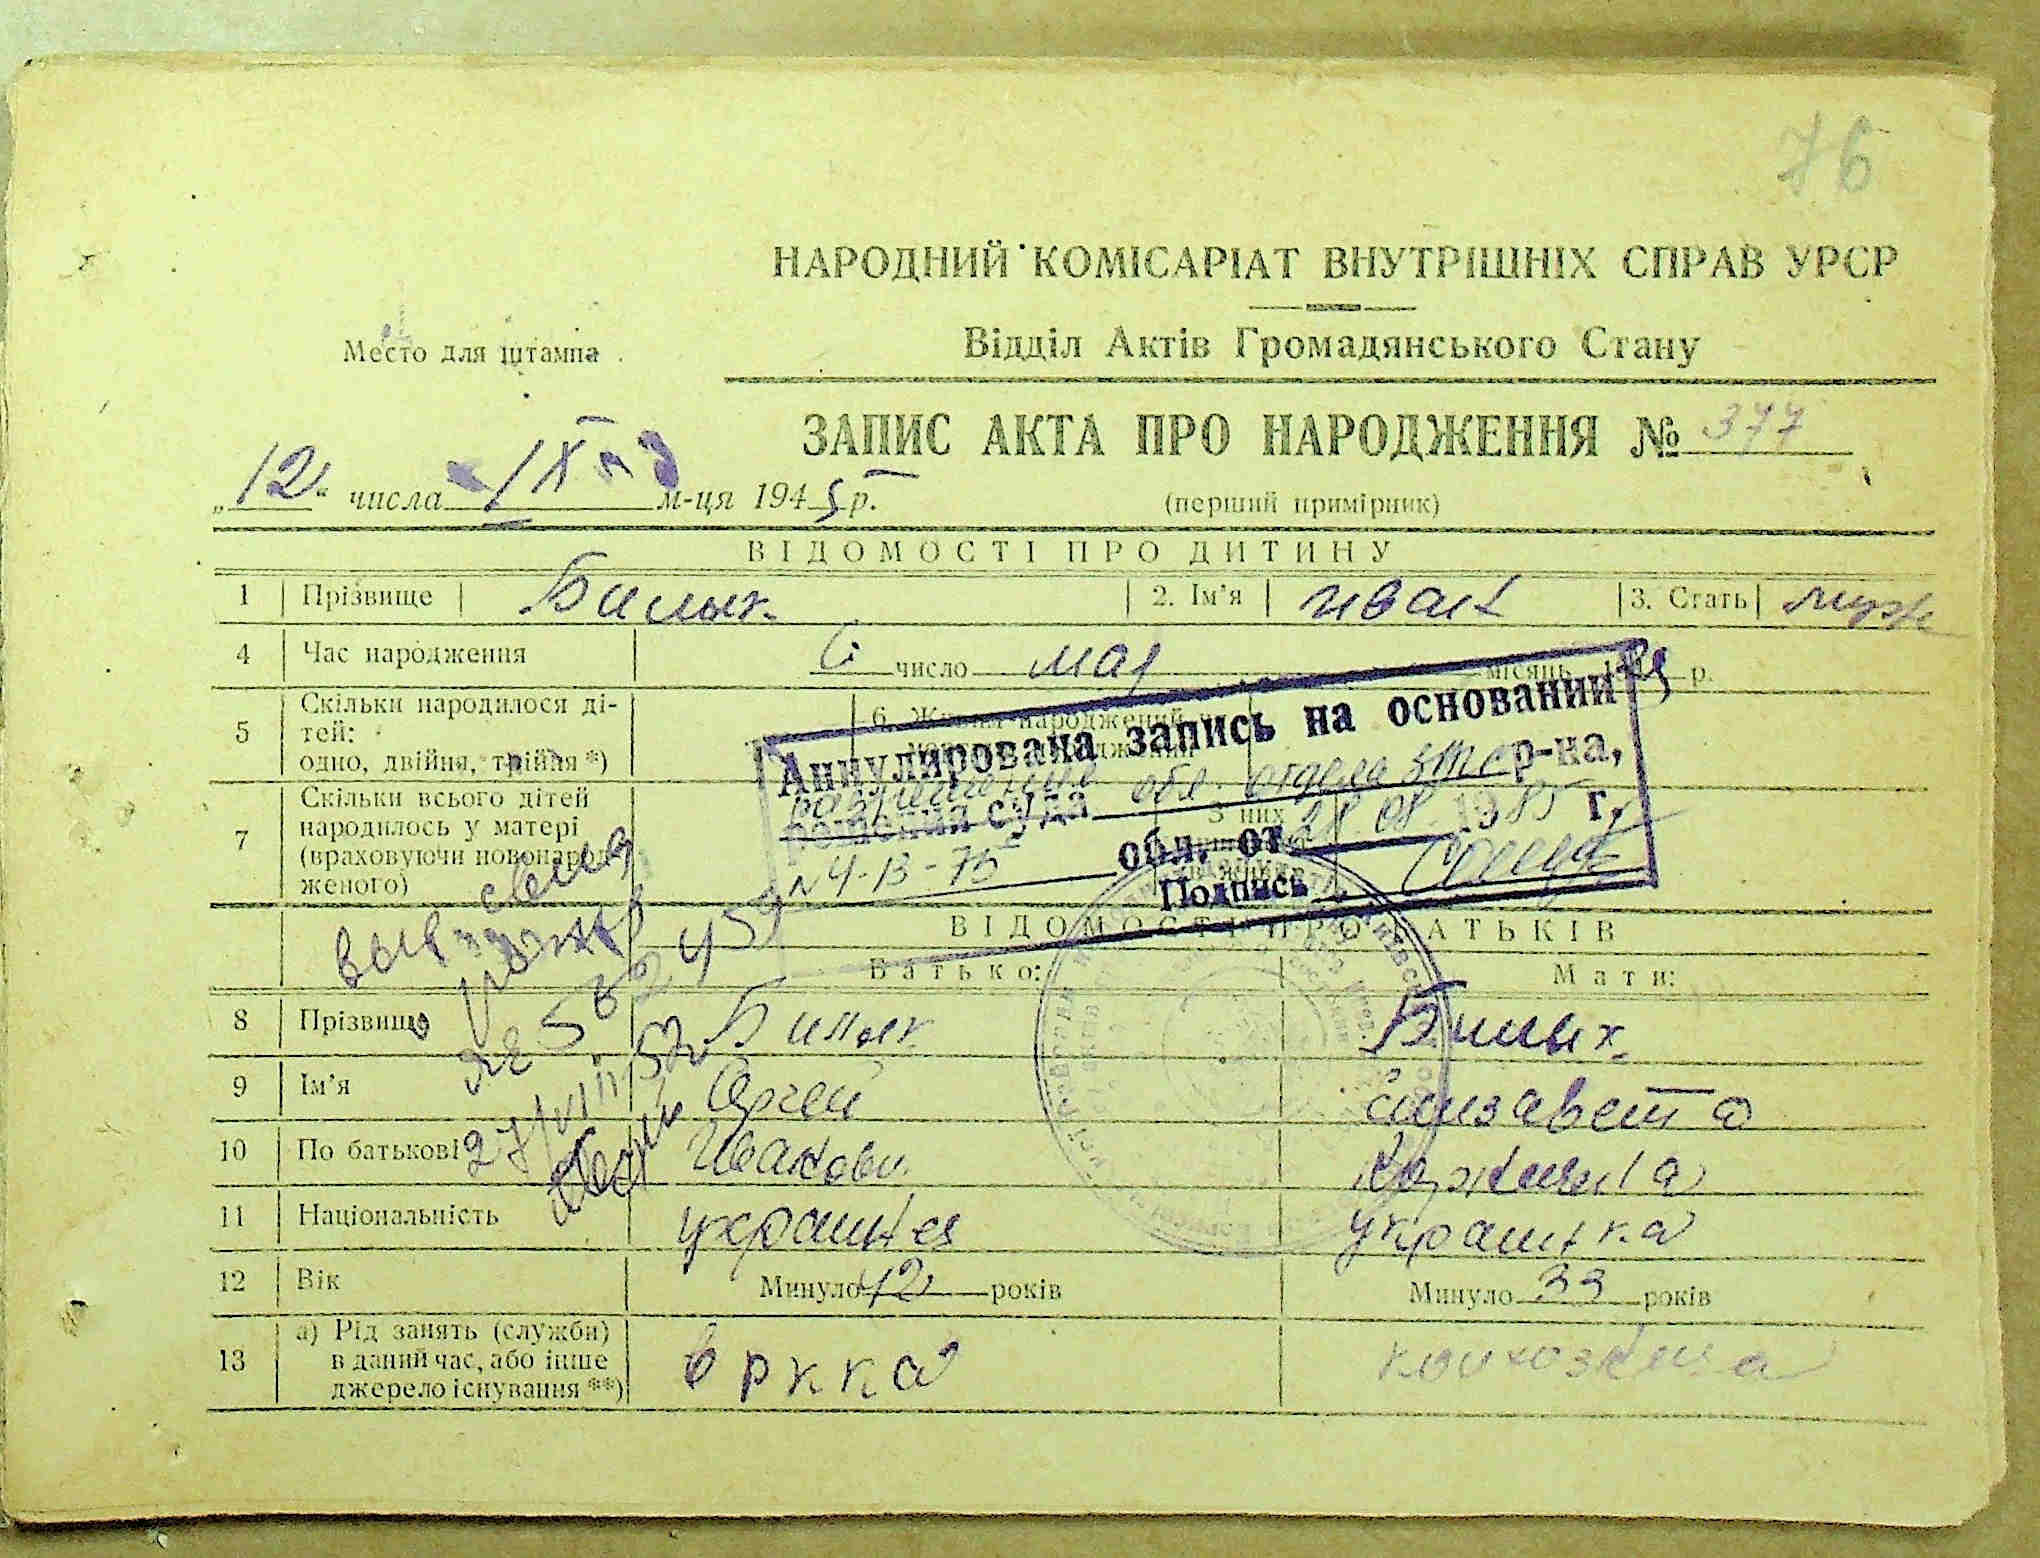 76
НАРОДНИЙ КОМІСАРІАТ ВНУТРІШНІХ СПРАВ УРСР
Место для штампа
Відділ Актів Громадянського Стану
ЗАПИС АКТА ПРО НАРОДЖЕННЯ № 377
„12“ числа IX м-ця 1945 р.
(перший примірник)
ВІДОМОСТІ ПРО ДИТИНУ
1 Прізвище Билык 2. Ім'я Иван 3. Стать муж
4 Час народження 6 число мая місяць р.
5 Скільки народилося ді-
тей:
одно, двійня, трійня *)
6. Живим народжений
Аннулирована запись на основании
обл. отдела загс р-на,
решения суда
обл. от 28.08.1985 г.
N 4-13-75
Подпись
7 Скільки всього дітей
народилось у матері
(враховуючи новонарод-
женого)
З них
ВІДОМОСТІ ПРО БАТЬКІВ
Батько: Мати:
8 Прізвище Билык Билык
9 Ім'я Сергей Елизавета
10 По батькові Иванови
11 Національність украинец украинка
12 Вік Минуло 42 років Минуло 33 років
13 а) Рід занять (служби)
в даний час, або інше
джерело існування **)
в ркка колхозница
27/VIII 52